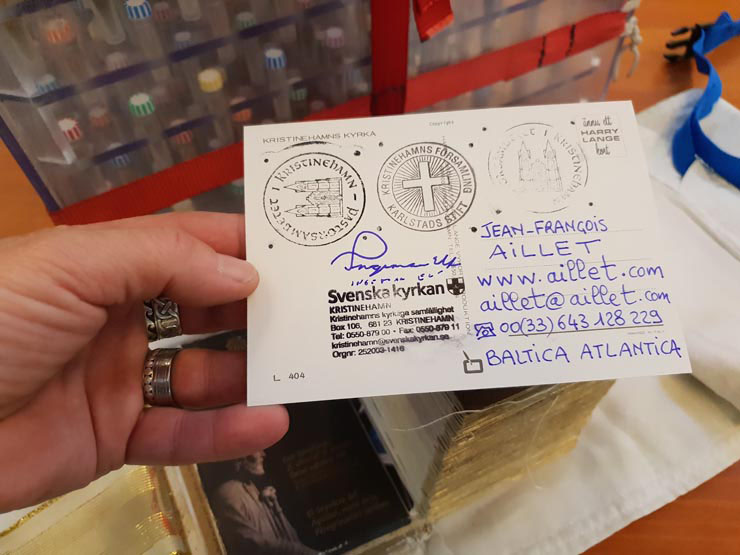 KRISTINEHAMNS KYRKA
Copyright
ännu ett
HARRY
LANGE
kort
PASTORSÄMBETET I KRISTINEHAMN
KRISTINEHAMNS FÖRSAMLING
KARLSTADS STIFT
PASTORSÄMBETET I KRISTINEHAMN
JEAN-FRANÇOIS
AILLET
www.aillet.com
aillet@aillet.com
☎ 00(33) 643 128 229
BALTICA ATLANTICA
Svenska kyrkan
KRISTINEHAMN
Kristinehamns kyrkliga samfällighet
Box 106, 681 23 KRISTINEHAMN
Tel: 0550-879 00 • Fax: 0550-879 11
kristinehamn@svenskakyrkan.se
Orgnr: 252003-1416
L 404